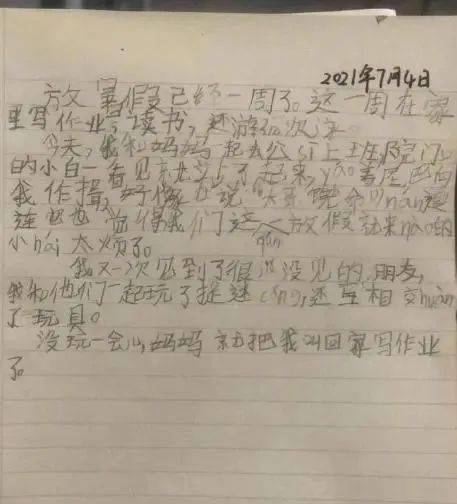 2021年7月4日
放暑假已经一周了。这一周在家
里写作业,读书,还游了几次泳。
今天,我和妈妈一起去公司上班,院门口
的小白一看见我就 了起来, yáo着尾巴向
我作揖,好像在说"大 饶命"! nán道
连 也觉得我们这一放假就来nào的
qún
小hái太烦了。
我又一次见到了很久没见的朋友,
我和他们一起玩了捉迷cáng,还互相交huàn
了玩具。
没玩一会儿,妈妈就把我叫回家写作业
了。